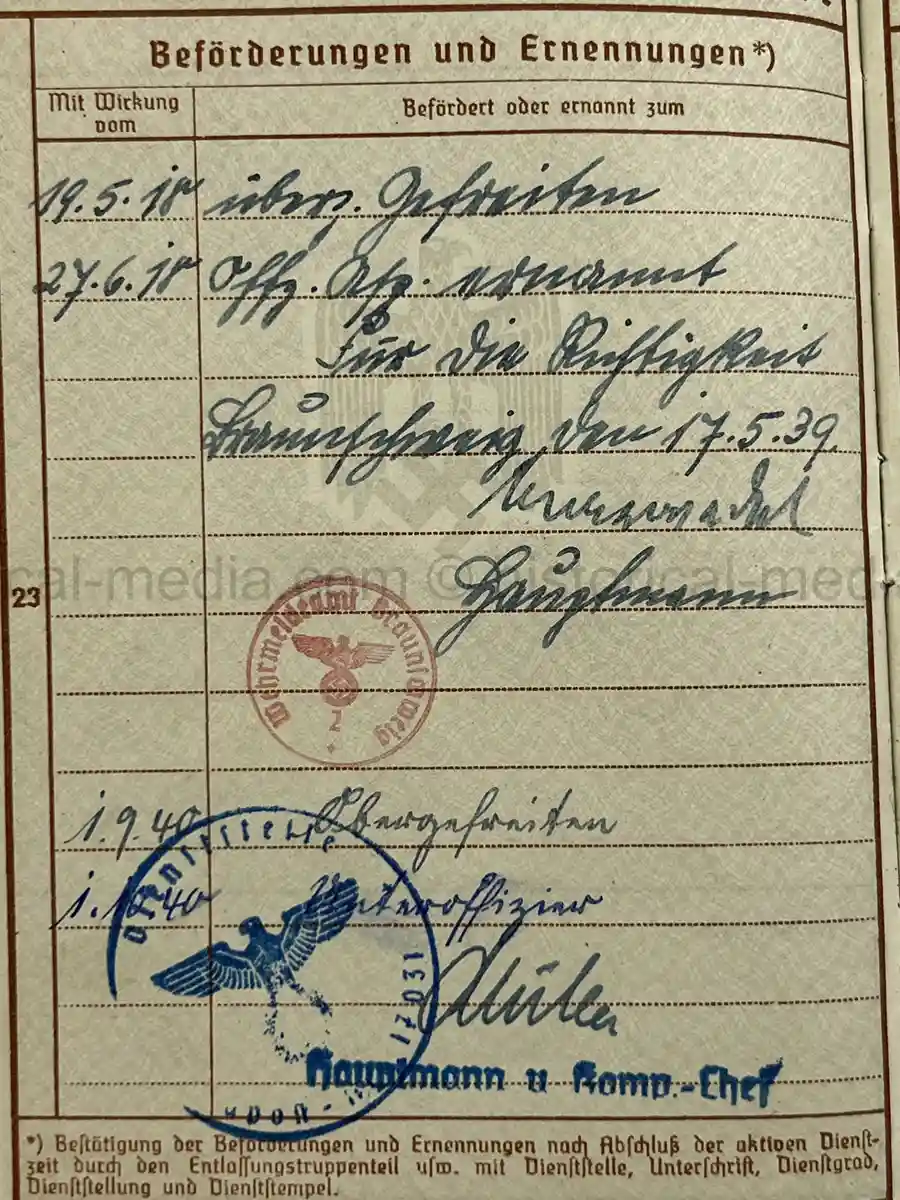 Beförderungen und Ernennungen*)
Mit Wirkung vom
Befördert oder ernannt zum
19.5.18 überz. Gefreiten
27.6.18 Offz. Asp. ernannt
Für die Richtigkeit
Braunschweig, den 17.5.39.
Hauptmann
23
Wehrmeldeamt Braunschweig
2
1.9.40 Obergefreiten
40 Unteroffizier
Müller
Dienststelle
17031
Hauptmann u Komp.-Chef
*) Bestätigung der Beförderungen und Ernennungen nach Abschluß der aktiven Dienst-
zeit durch den Entlassungstruppenteil usw. mit Dienststelle, Unterschrift, Dienstgrad,
Dienststellung und Dienststempel.
cal-media.com © historical-med